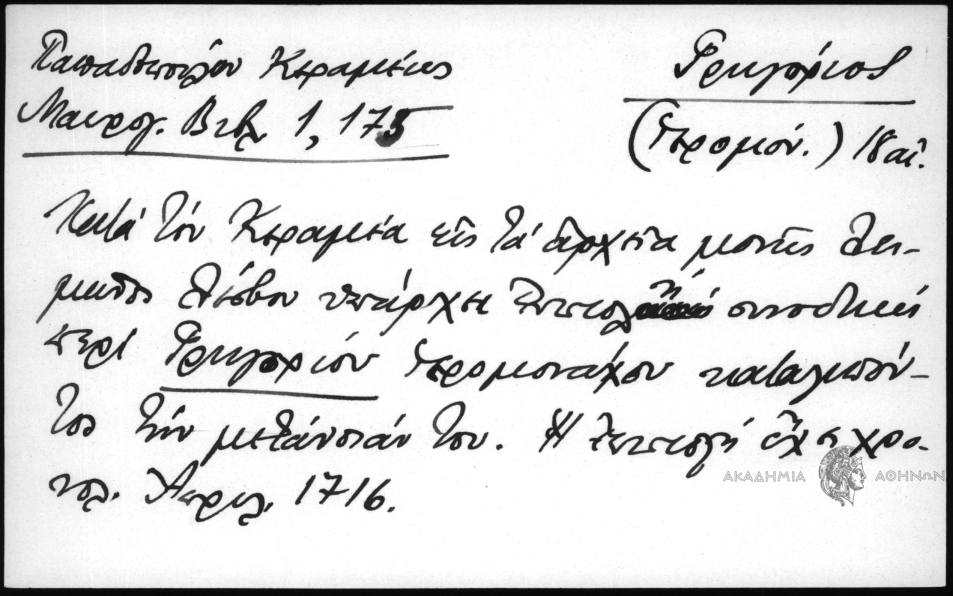 Παπαδοπούλου Κεραμέως
Μαυρογ. Βιβλ. 1, 175
Γρηγόριος
(ἱερομόν.) 18 αἰ.
Κατά τόν Κεραμέα εἰς τά ἀρχεῖα μονῆς Λει-
μῶνος Λέσβου ὑπάρχει ἐπιστολή συνοδική
περί Γρηγορίου ἱερομονάχου καταλιπόν-
τος τήν μετάνοιάν του. Ἡ ἐπιστολή ἔχει χρο-
νολ. Ἀπριλ. 1716.
ΑΚΑΔΗΜΙΑ ΑΘΗΝΩΝ